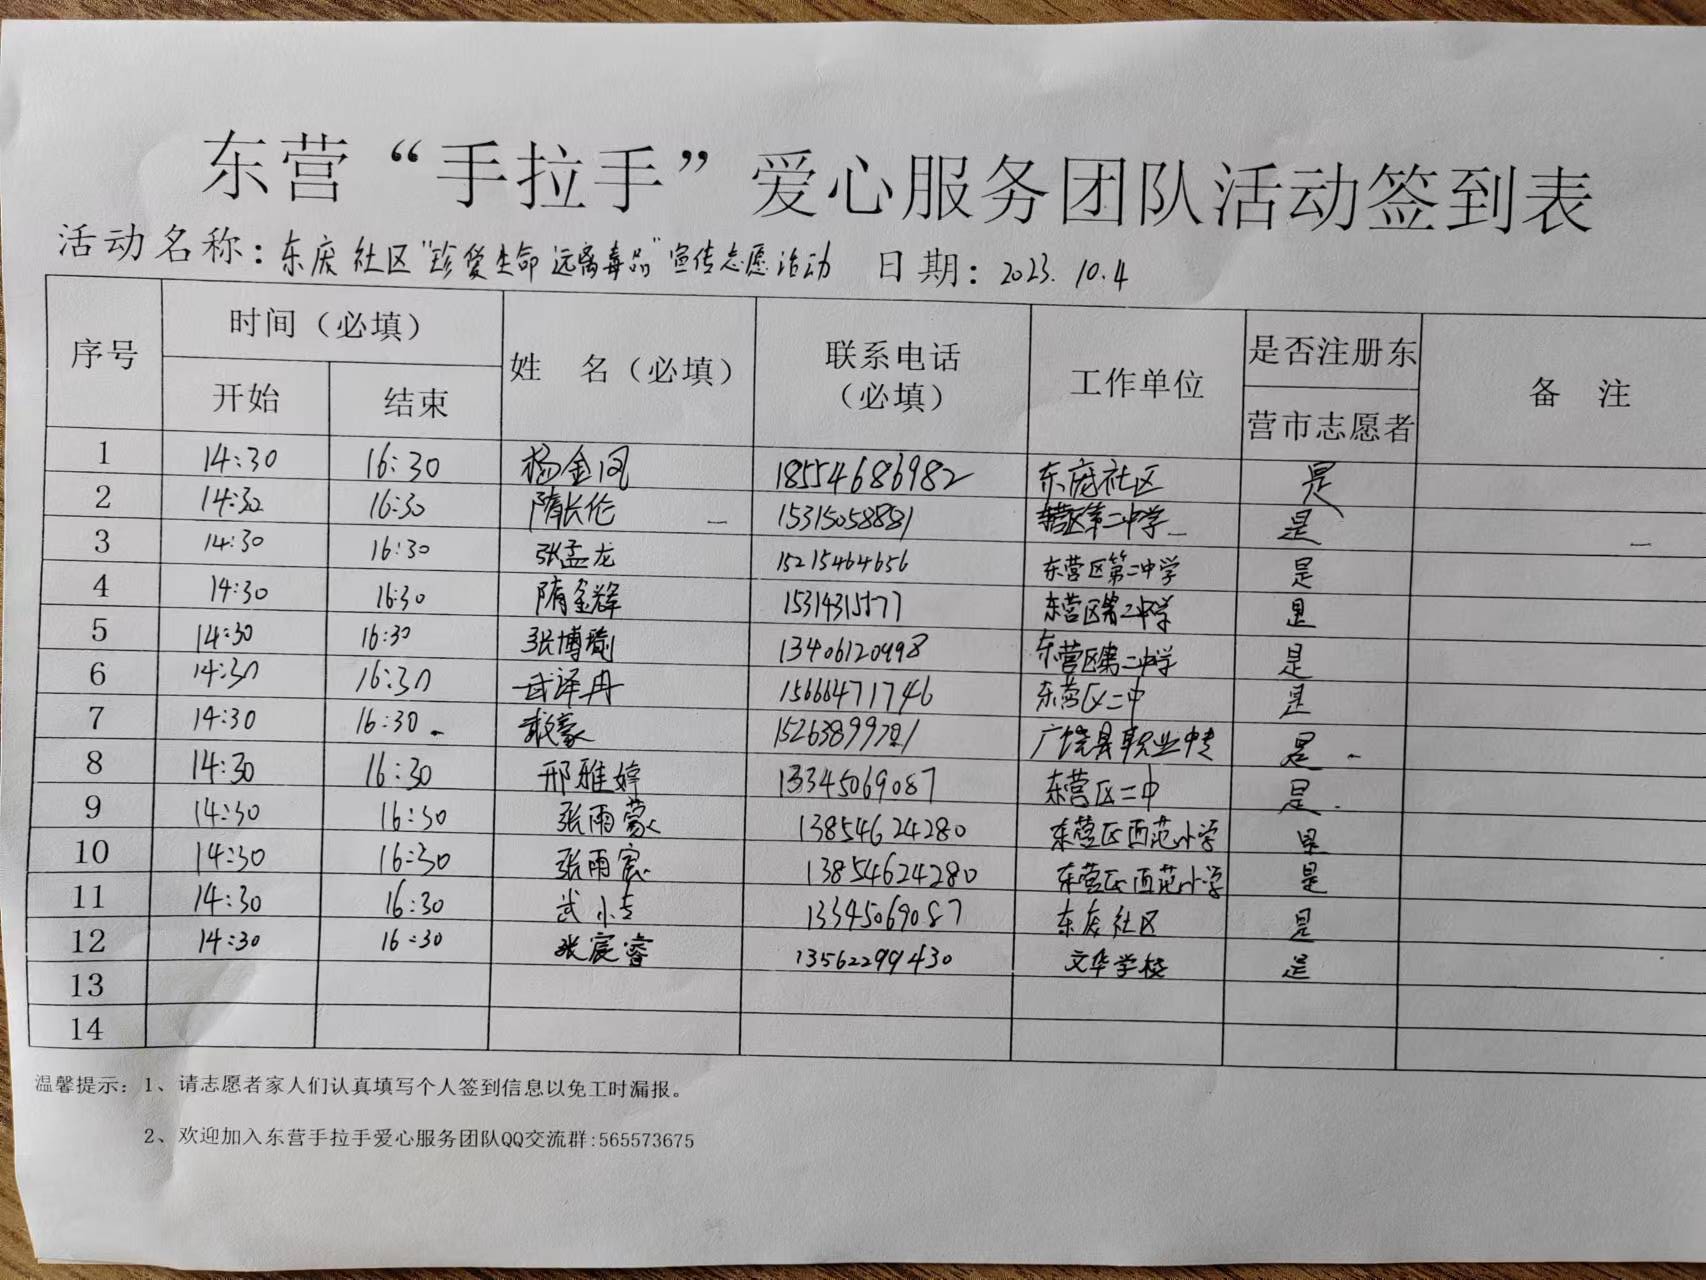 东营“手拉手”爱心服务团队活动签到表
活动名称：东庆社区“珍爱生命 远离毒品”宣传志愿活动 日期：2023.10.4
序号 时间（必填） 姓 名（必填） 联系电话（必填） 工作单位 是否注册东营市志愿者 备 注
开始 结束
1 14:30 16:30 杨金凤 18554686982 东府社区 是
2 14:30 16:30 隋长伦 15315058881 东营区第二中学 是
3 14:30 16:30 张孟龙 15215464656 东营区第二中学 是
4 14:30 16:30 隋金辉 15314315177 东营区第二中学 是
5 14:30 16:30 张博瀚 13406120998 东营区第二中学 是
6 14:30 16:30 武泽冉 15666471746 东营区二中 是
7 14:30 16:30 广饶县职业中专 是
8 14:30 16:30 邢雅婷 13345069087 东营区二中 是
9 14:30 16:30 张雨蒙 13854624280 东营区西范小学 是
10 14:30 16:30 张雨宸 13854624280 东营区西范小学 是
11 14:30 16:30 武小专 13345069087 东庆社区 是
12 14:30 16:30 张宸睿 13562299430 文华学校 是
13
14
温馨提示：1、请志愿者家人们认真填写个人签到信息以免工时漏报。
2、欢迎加入东营手拉手爱心服务团队QQ交流群:565573675